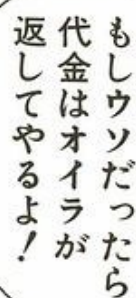 もしウソだったら
代金はオイラが
返してやるよ！